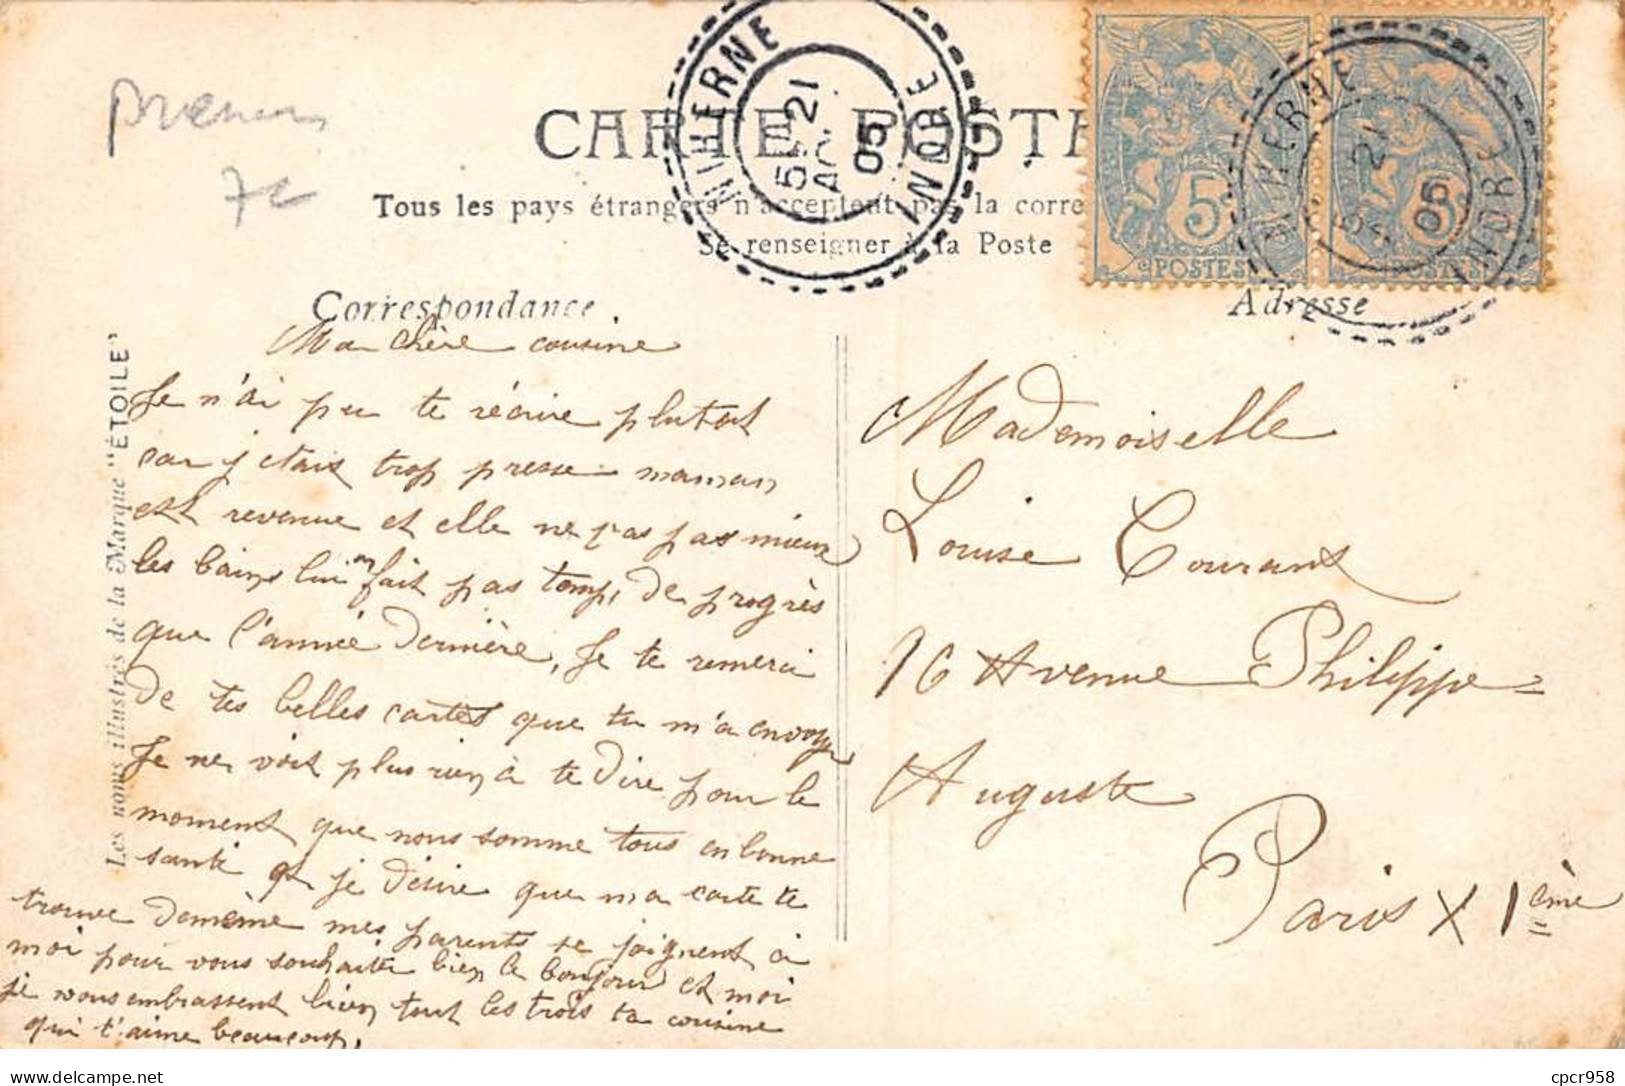 prenom
7€
CARTE POSTA
Tous les pays étrangers n'acceptent pas la corre
Se renseigner à la Poste
NIHERNE
5E 21
AO
05
INDRE
5
POSTES
5
POSTES
NIHERNE
5E 21
05
INDRE
Correspondance
Adresse
Les noms illustrés de la Marque "ÉTOILE"
Ma chère cousine
Je n'ai pu te réécrire plutot
car j etais trop presse maman
est revenue et elle ne vas pas mieux
les bains lui on fait pas temps de progrès
que l'année dernière, Je te remerci
de tes belles cartes que tu m'a envoye
Je ne voit plus rien à te dire pour le
moment que nous somme tous en bonne
santé que je désire que ma carte te
trouve demême mes parents se joignent à
moi pour vous souhaiter bien le bonjour et moi
je vous embrassent bien tout les trois ta cousine
qui t'aime beaucoup,
Mademoiselle
Louise Courant
16 Avenue Philippe=
Auguste
Paris X 1ème
cpcr958